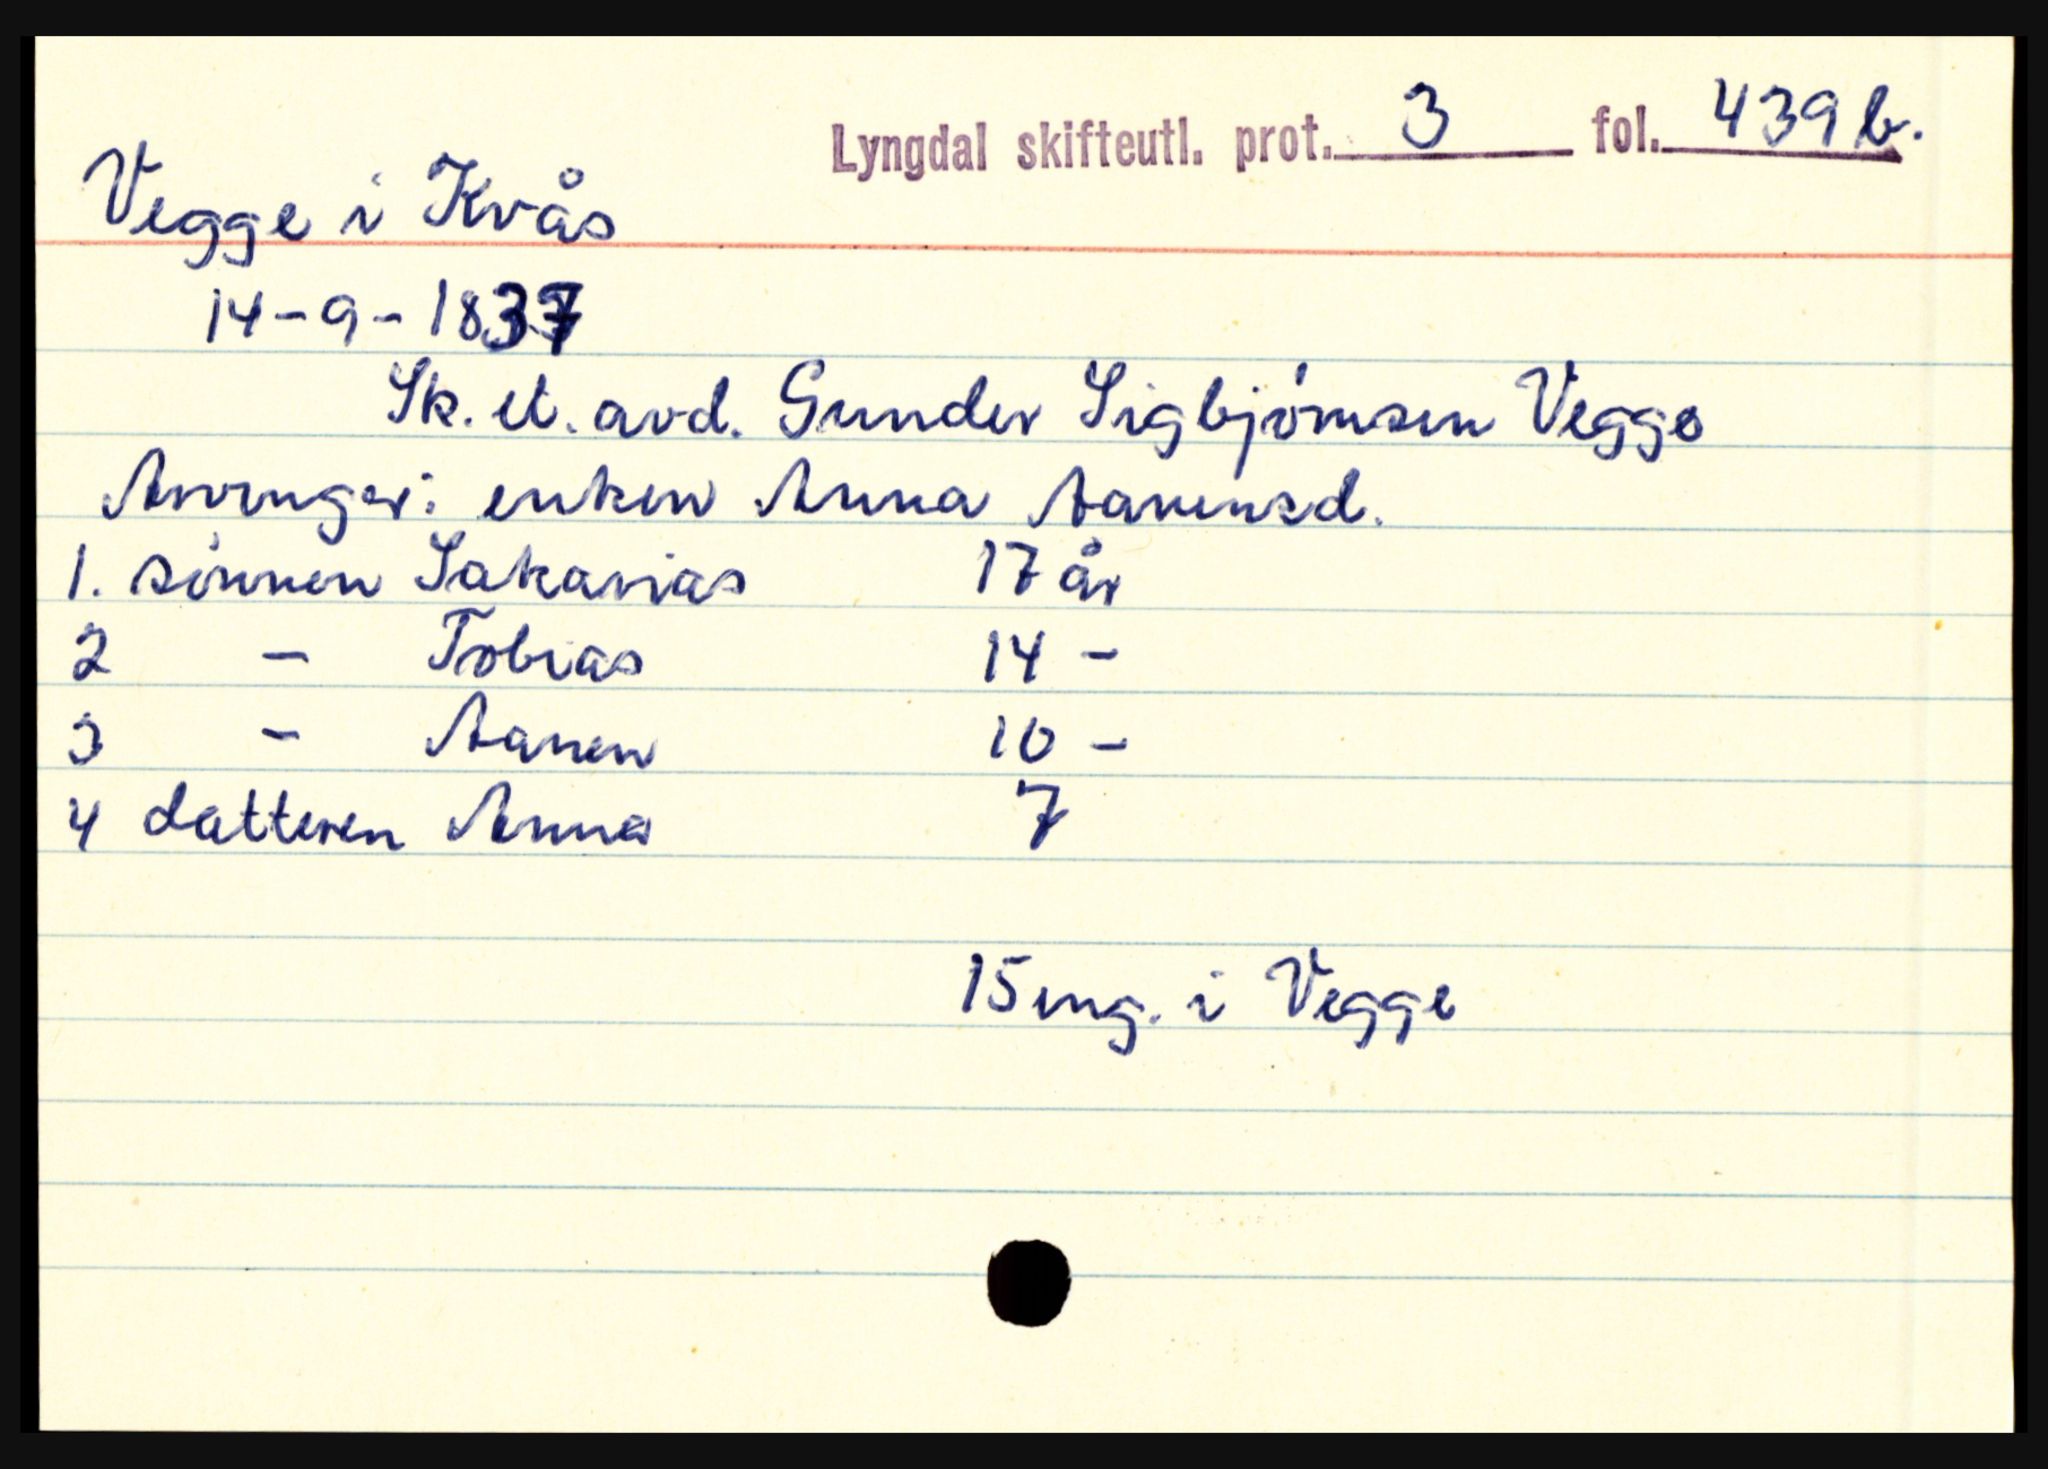 Lyngdal skifteutl. prot. 3 fol. 439 b.
Vegge i Kvås
14-9-1837
Sk. et. avd. Gunder Sigbjørnsen Vegge
Arvinger: enken Anna Aanensd.
1. sønnen Sakarias 17 år
2 - Tobias 14 -
3 - Aanen 10 -
4 datteren Anna 7
15 eng. i Vegge